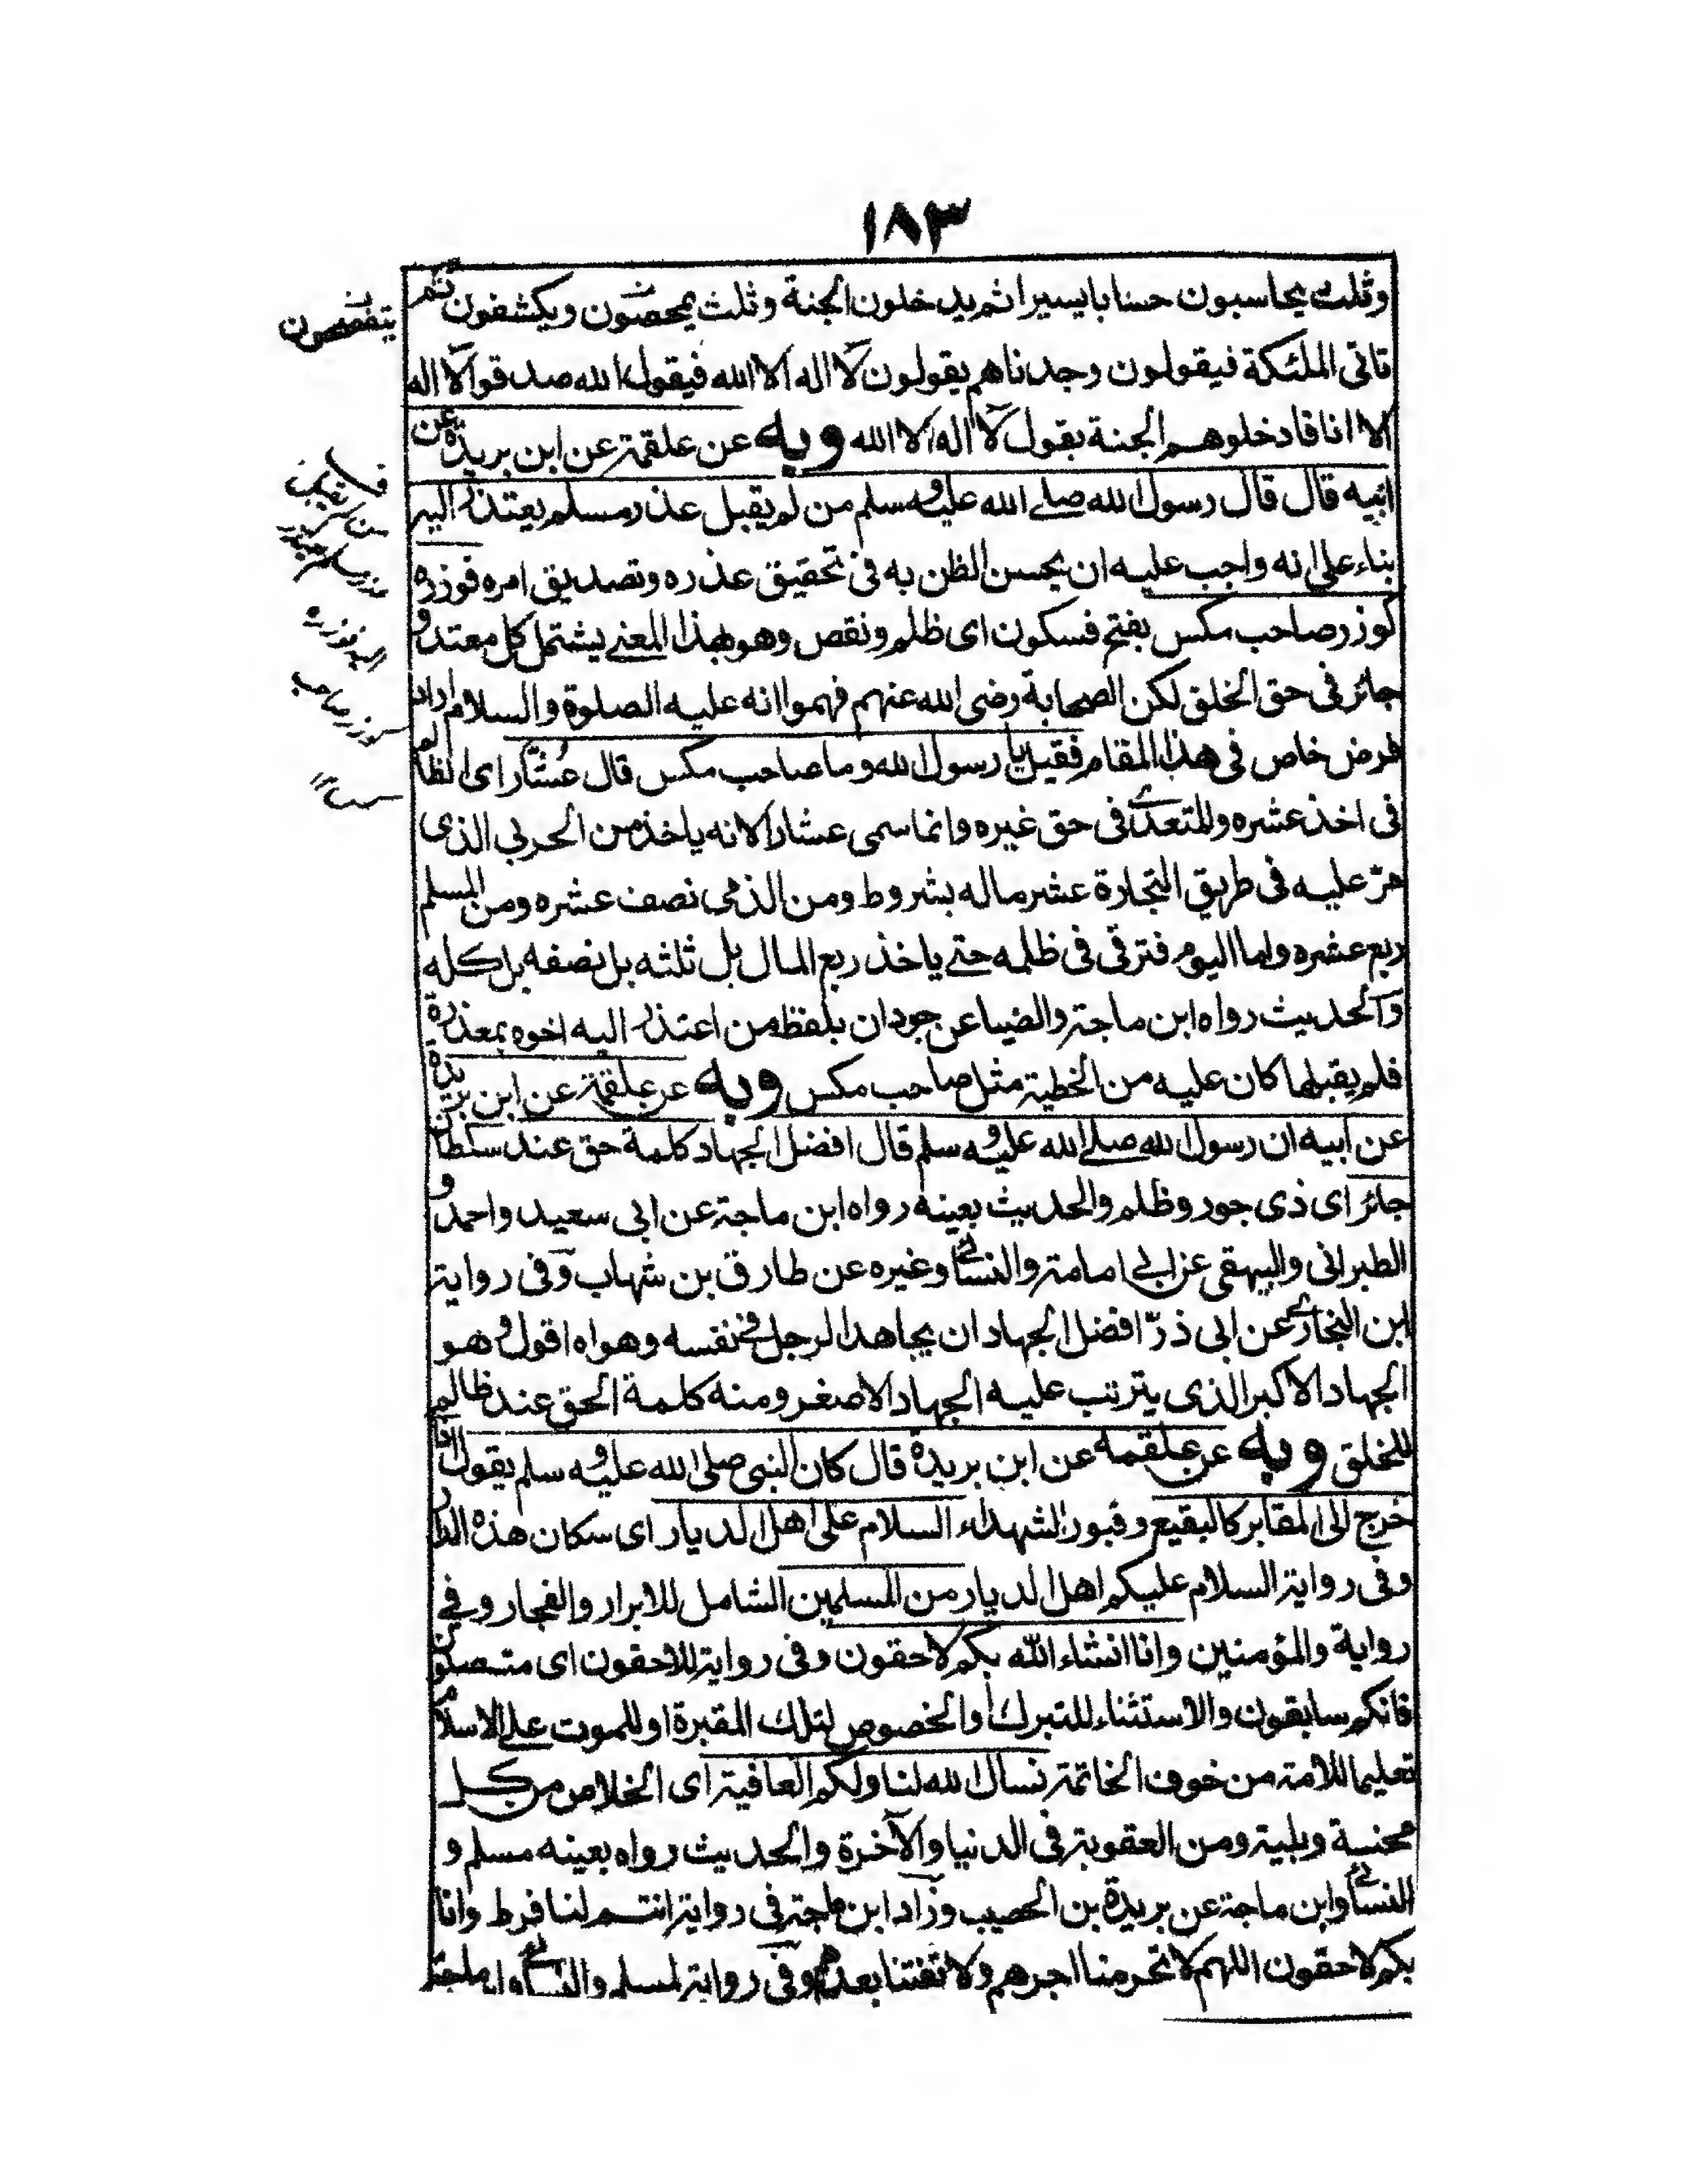 ١٨٣
وثلث يحاسبون حسابا يسيرا ثم يدخلون الجنة وثلث يمحصون ويكشفون ثم
تاتى الملئكة فيقولون وجدناهم يقولون لا اله الا الله فيقول الله صدقوا لا اله
الا انا فادخلوهم الجنة بقول لا اله الا الله وبه عن علقمة عن ابن بريدة عن
ابيه قال قال رسول الله صلى الله عليه وسلم من لم يقبل عذر مسلم يعتذر اليه
بناء على انه واجب عليه ان يحسن الظن به فى تحقيق عذره وتصديق امره فوزره
كوزر صاحب مكس بفتح فسكون اى ظلم ونقص وهو بهذا المعنى يشتمل كل معتد و
جائر فى حق الخلق لكن الصحابة رضى الله عنهم فهموا انه عليه الصلوة والسلام اراد
فرض خاص فى هذا المقام فقيل يا رسول الله وما صاحب مكس قال عشّار اى الظالم
فى اخذ عشره وللتعدى فى حق غيره وانما سمى عشارا لانه ياخذ من الحربى الذى
مرّ عليه فى طريق التجارة عشر ماله بشروط ومن الذمى نصف عشره ومن المسلم
ربع عشره واما اليوم فترقى فى ظلمه حتى ياخذ ربع المال بل ثلثه بل نصفه بل كله
والحديث رواه ابن ماجة والضيا عن جودان بلفظ من اعتذر اليه اخوه بمعذرة
فلم يقبلها كان عليه من الخطية مثل صاحب مكس وبه عن علقمة عن ابن بريدة
عن ابيه ان رسول الله صلى الله عليه وسلم قال افضل الجهاد كلمة حق عند سلطان
جائر اى ذى جور وظلم والحديث بعينه رواه ابن ماجة عن ابى سعيد واحمد و
الطبرانى والبيهقى عن ابى امامة والنسائى وغيره عن طارق بن شهاب وفى رواية
ابن النجارى عن ابى ذرّ افضل الجهاد ان يجاهد الرجل فى نفسه وهواه اقول وهو
الجهاد الاكبر الذى يترتب عليه الجهاد الاصغر ومنه كلمة الحق عند ظالم
للخلق وبه عن علقمه عن ابن بريدة قال كان النبى صلى الله عليه وسلم يقول اذا
خرج الى المقابر كالبقيع وقبور الشهداء السلام على اهل الديار اى سكان هذه الدار
وفى رواية السلام عليكم اهل الديار من المسلمين الشامل للابرار والفجار وفى
رواية والمؤمنين وانا انشاء الله بكم لاحقون وفى رواية للاحقون اى متصلون
فانكم سابقون والاستثناء للتبرك او الخصوص لتلك المقبرة او للموت على الاسلام
تعليما للامة من خوف الخاتمة نسال الله لنا ولكم العافية اى الخلاص من كل
محنسة وبلية ومن العقوبة فى الدنيا والآخرة والحديث رواه بعينه مسلم و
النسائى وابن ماجة عن بريدة بن الحصيب وزاد ابن ماجة فى رواية انتم لنا فرط وانا
بكم لاحقون اللهم لا تحرمنا اجرهم ولا تفتنا بعدهم وفى رواية لمسلم والنسائى وابن ماجة